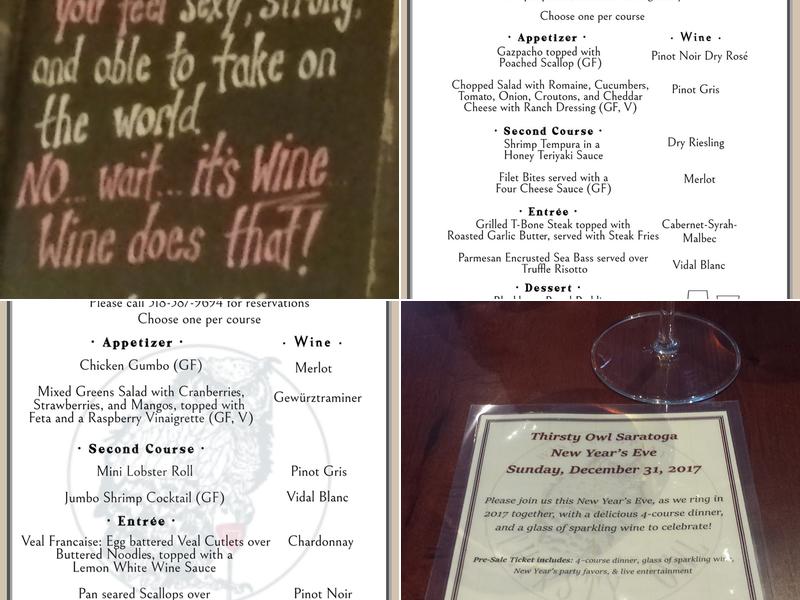 you feel sexy, strong,
and able to take on
the world
NO... wait... it's Wine
Wine does that!
Choose one per course
· Appetizer ·
· Wine ·
Gazpacho topped with
Poached Scallop (GF)
Pinot Noir Dry Rosé
Chopped Salad with Romaine, Cucumbers,
Tomato, Onion, Croutons, and Cheddar
Cheese with Ranch Dressing (GF, V)
Pinot Gris
· Second Course ·
Shrimp Tempura in a
Honey Teriyaki Sauce
Dry Riesling
Filet Bites served with a
Four Cheese Sauce (GF)
Merlot
· Entrée ·
Grilled T-Bone Steak topped with
Roasted Garlic Butter, served with Steak Fries
Cabernet-Syrah-
Malbec
Parmesan Encrusted Sea Bass served over
Truffle Risotto
Vidal Blanc
· Dessert ·
Please call 518-587-9694 for reservations
Choose one per course
· Appetizer ·
· Wine ·
Chicken Gumbo (GF)
Merlot
Mixed Greens Salad with Cranberries,
Strawberries, and Mangos, topped with
Feta and a Raspberry Vinaigrette (GF, V)
Gewürztraminer
· Second Course ·
Mini Lobster Roll
Pinot Gris
Jumbo Shrimp Cocktail (GF)
Vidal Blanc
· Entrée ·
Veal Francaise: Egg battered Veal Cutlets over
Buttered Noodles, topped with a
Lemon White Wine Sauce
Chardonnay
Pan seared Scallops over
Pinot Noir
Thirsty Owl Saratoga
New Year's Eve
Sunday, December 31, 2017
Please join us this New Year's Eve, as we ring in
2017 together, with a delicious 4-course dinner,
and a glass of sparkling wine to celebrate!
Pre-Sale Ticket includes: 4-course dinner, glass of sparkling wine,
New Year's party favors, & live entertainment